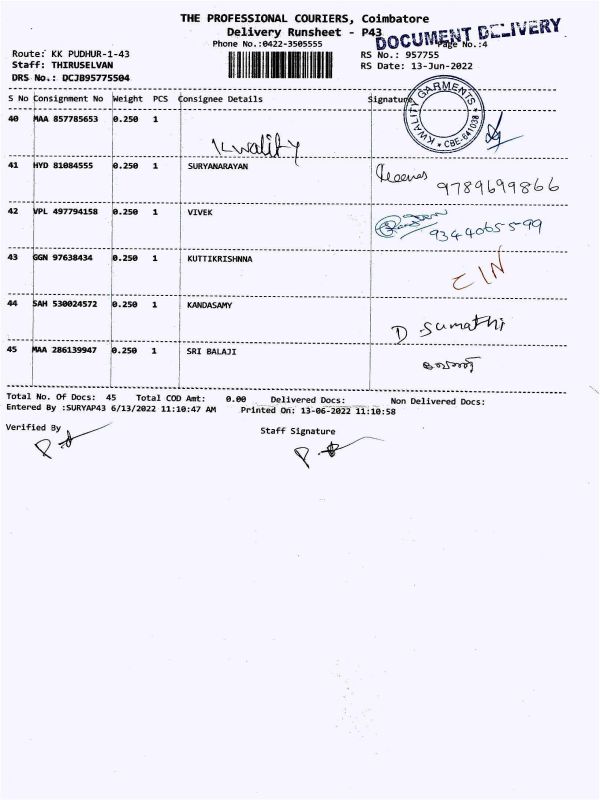 THE PROFESSIONAL COURIERS, Coimbatore
Delivery Runsheet - P43
DOCUMENT DELIVERY
Phone No.:0422-3505555
Page No.:4
Route: KK PUDHUR-1-43
RS No.: 957755
Staff: THIRUSELVAN
RS Date: 13-Jun-2022
DRS No.: DCJB95775504
S No Consignment No Weight PCS Consignee Details Signature
KWALITY GARMENTS * CBE-641038 *
40 MAA 857785653 0.250 1 Kwality
41 HYD 81084555 0.250 1 SURYANARAYAN 9789699866
42 VPL 497794158 0.250 1 VIVEK 9344065599
43 GGN 97638434 0.250 1 KUTTIKRISHNNA
44 SAH 530024572 0.250 1 KANDASAMY D Sumathi
45 MAA 286139947 0.250 1 SRI BALAJI
Total No. Of Docs: 45 Total COD Amt: 0.00 Delivered Docs: Non Delivered Docs:
Entered By :SURYAP43 6/13/2022 11:10:47 AM Printed On: 13-06-2022 11:10:58
Verified By
Staff Signature